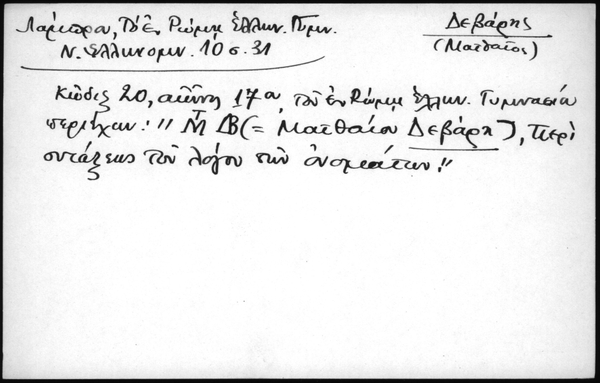 Λάμπρου, Τὸ ἐν Ρώμῃ Ἑλλην. Γυμν.
Ν. Ἑλληνομν. 10 σ. 31
Δεβάρης
(Ματθαῖος)
Κῶδιξ 20, αἰῶνος 17ου, τοῦ ἐν Ρώμῃ Ἑλλην. Γυμνασίου
περιέχων: "Μ̅ ΔΒ (= Ματθαίου Δεβάρη), Περὶ
συντάξεως τοῦ λόγου τῶν ὀνομάτων."